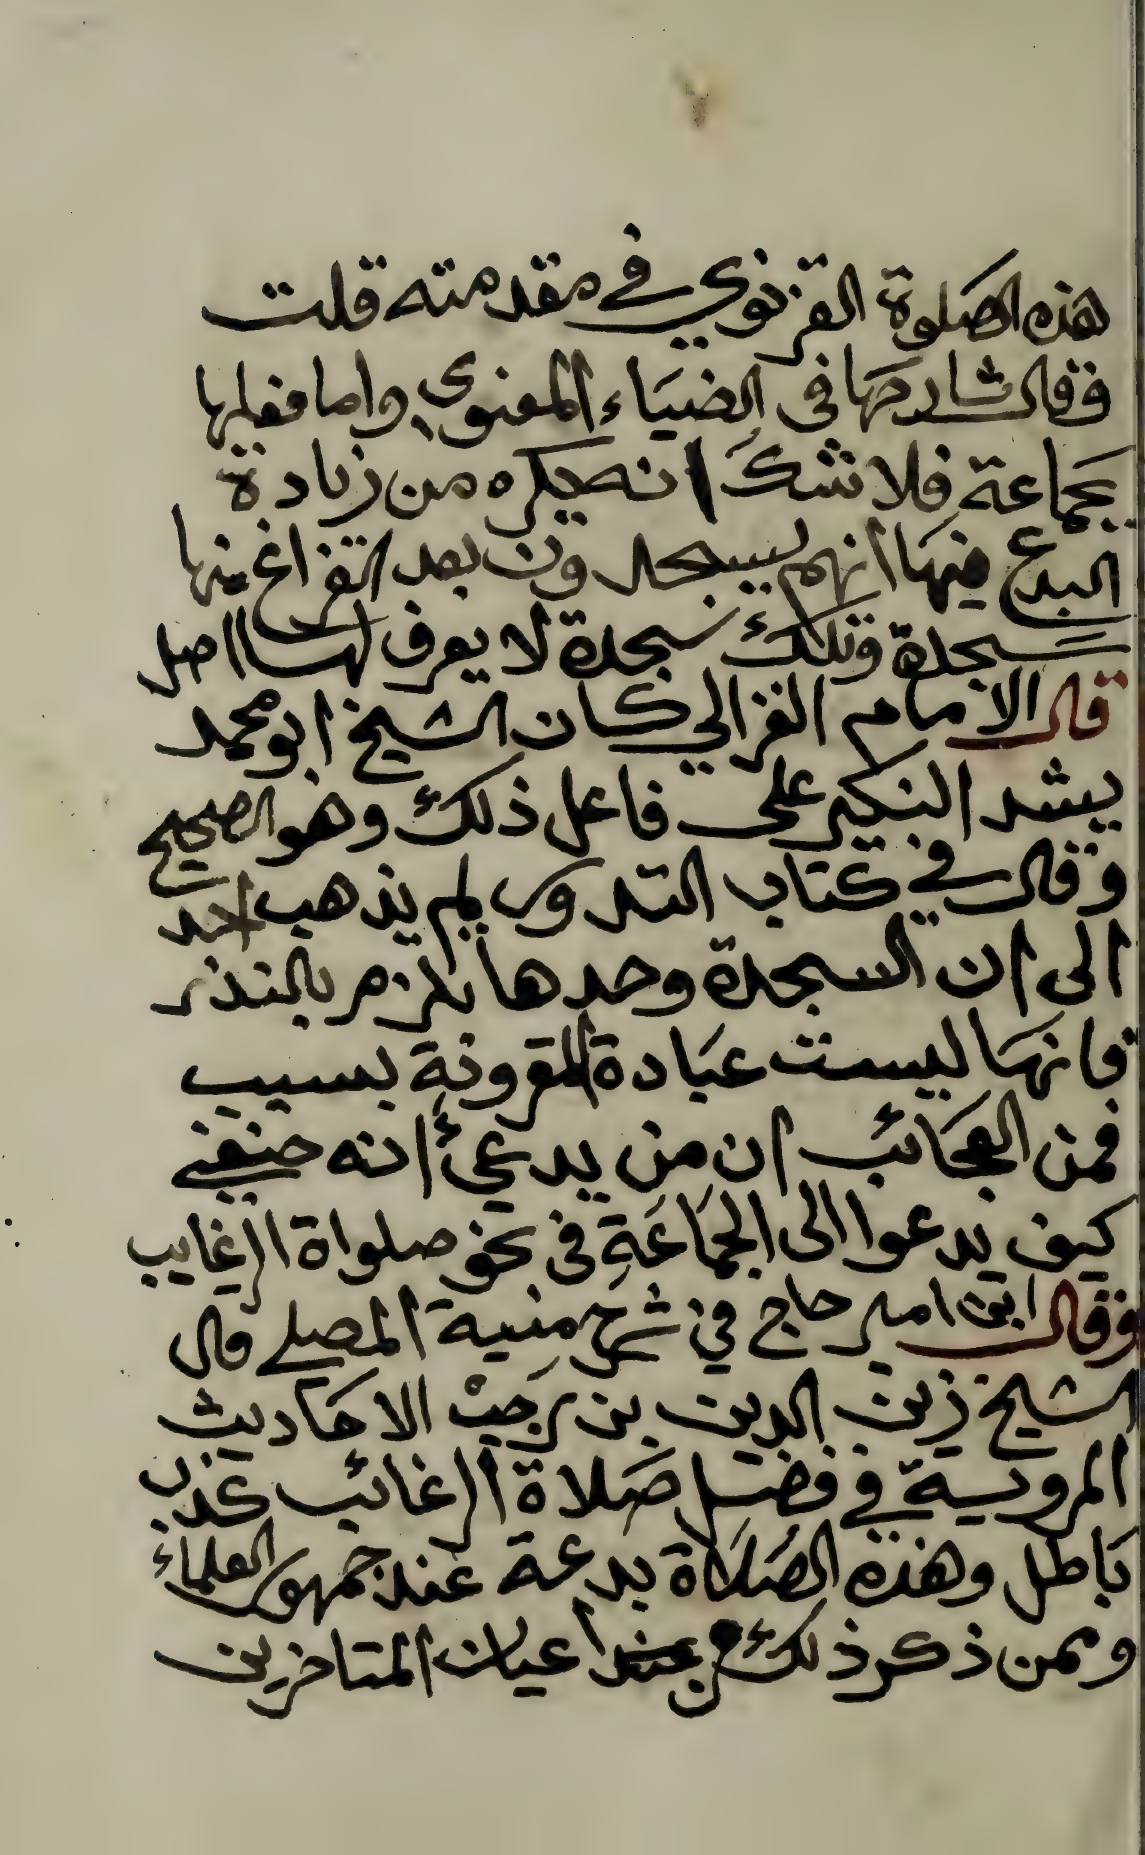 هذه الصلوة الغزنوي في مقدمته قلت
فقال شارحها في الضياء المعنوي واما فعلها
بجماعة فلا شك انه يكره من زيادة
البدع فيها انهم يسجدون بعد الفراغ منها
سجدة وتلك سجدة لا يعرف لها اصل
قال الامام الغزالي كان الشيخ ابو محمد
يشد النكير على فاعل ذلك وهو الصحيح
وقال في كتاب النذور لم يذهب احد
الى ان السجدة وحدها تلزم بالنذر
فانها ليست عبادة المقرونة بسبب
فمن العجائب ان من يدعي انه حنفي
كيف يدعوا الى الجماعة في نحو صلواة الرغايب
وقال ابن امير حاج في شرح منية المصلي قال
الشيخ زين الدين بن رجب الاحاديث
المروية في فضل صلاة الرغائب كذب
باطل وهذه الصلاة بدعة عند جمهور العلماء
وممن ذكر ذلك من اعيان المتاخرين